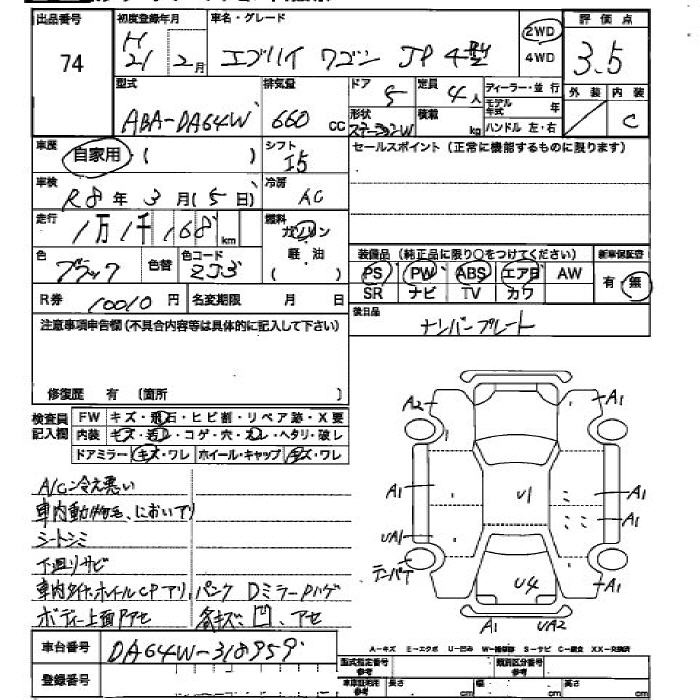 出品番号 初度登録年月 車名・グレード 評価点
74 H21年2月 エブリイ ワゴン JP 4型 2WD 4WD 3.5
型式 排気量 ドア 定員 ディーラー・並行 外装 内装
ABA-DA64W 660 CC 5 4人 モデル年式 年 C
形状 ステーションW 積載 kg ハンドル 左・右
車歴 自家用 ( ) シフト I5 セールスポイント (正常に機能するものに限ります)
車検 R8年3月(5日) 冷房 AC
走行 1万1千168 km 燃料 ガソリン
色 ブラック 色替 色コード ZJ3 軽・油 ( )
装備品 (純正品に限り○をつけてください) 新車保証書
PS PW ABS エアB AW 有・無
SR ナビ TV カワ
R券 10010円 名変期限 月 日 後日品
ナンバープレート
注意事項申告欄 (不具合内容等は具体的に記入して下さい)
修復歴 有 〔箇所 〕
検査員記入欄 FW キズ・飛石・ヒビ割・リペア跡・X要
内装 キズ・若レ・コゲ・穴・スレ・ヘタリ・破レ
ドアミラー キズ・ワレ ホイール・キャップ キズ・ワレ
A2 A1
A/C冷え悪い
A1 U1 A1
車内動物毛、においアリ
A1
シートシミ
UA1
下廻りサビ
A1
車内タイヤ、ホイールCPアリ、パンク DミラーPハゲ
U4
ボディー上面Pアセ 各キズ凹、アセ
A1 UA2
車台番号 DA64W-318959
A-キズ E-エクボ U-凹み W-補修跡 S-サビ C-腐食 XX-交換済
登録番号
型式指定番号 参考 類別区分番号 参考
長さ cm 幅 cm 高さ cm